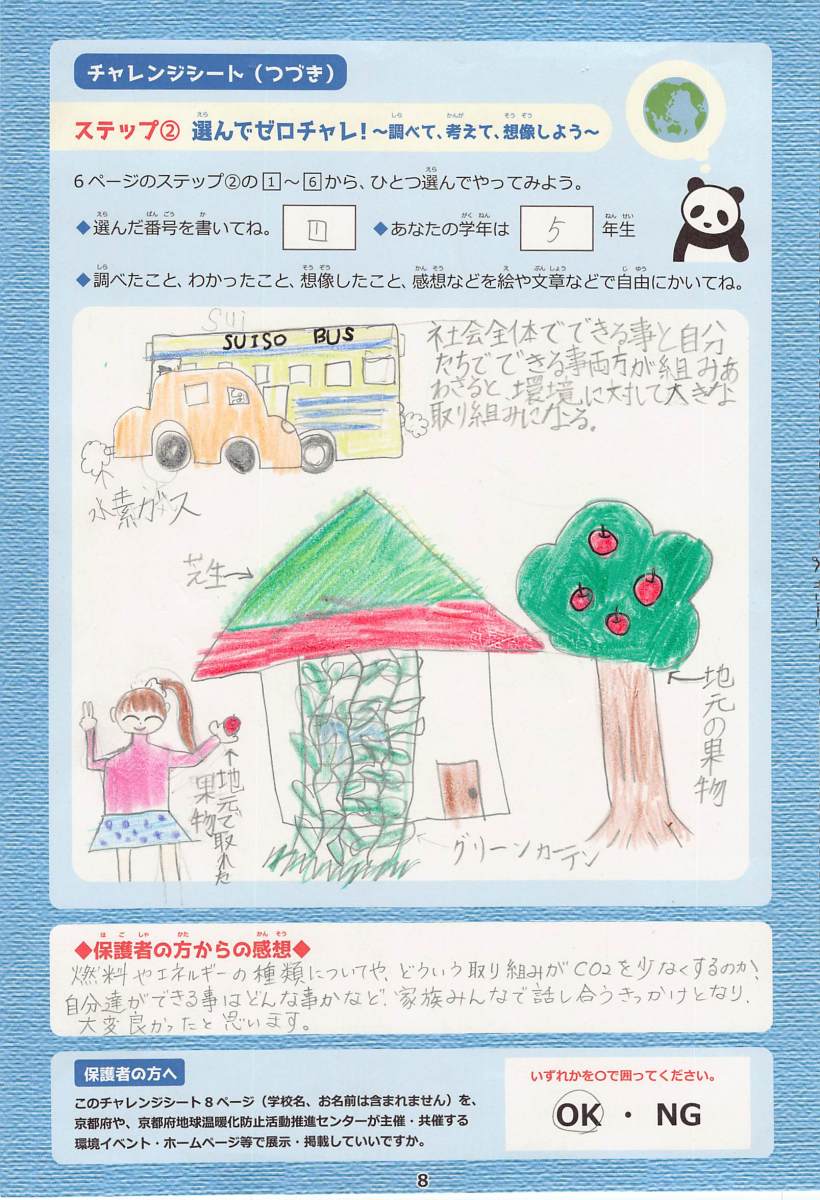 チャレンジシート(つづき)
ステップ② 選んでゼロチャレ!～調べて、考えて、想像しよう～
えら しら かんが そう ぞう
6ページのステップ②の1～6から、ひとつ選んでやってみよう。
えら
◆選んだ番号を書いてね。 1 ◆あなたの学年は 5 年生
えら ばん ごう か がく ねん ねん せい
◆調べたこと、わかったこと、想像したこと、感想などを絵や文章などで自由にかいてね。
しら そう ぞう かん そう え ぶん しょう じ ゆう
Sui
SUISO BUS
社会全体でできる事と自分
たちでできる事両方が組みあ
わさると、環境に対して大きな
取り組みになる。
水素ガス
芝生→
←地元の果物
↑地元で取れた
果物
グリーンカーテン
◆保護者の方からの感想◆
ほ ご しゃ かた かん そう
燃料やエネルギーの種類についてや、どういう取り組みがCO2を少なくするのか、
自分達ができる事はどんな事かなど、家族みんなで話し合うきっかけとなり、
大変良かったと思います。
保護者の方へ
このチャレンジシート8ページ(学校名、お名前は含まれません)を、
京都府や、京都府地球温暖化防止活動推進センターが主催・共催する
環境イベント・ホームページ等で展示・掲載していいですか。
いずれかを○で囲ってください。
OK ・ NG
8